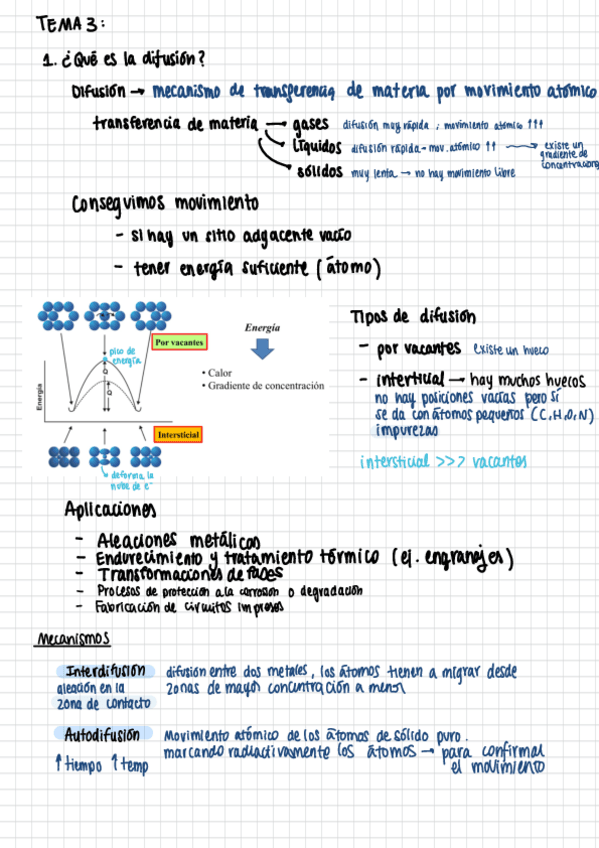 TEMA 3:
1. ¿Qué es la difusión?
Difusión → mecanismo de transferencia de materia por movimiento atómico
transferencia de materia → gases difusión muy rápida ; movimiento atómico ↑↑↑
líquidos difusión rápida - mov. atómico ↑↑ → existe un
gradiente de
concentracion
sólidos muy lenta → no hay movimiento libre
Conseguimos movimiento
- si hay un sitio adyacente vacío
- tener energía suficiente (átomo)
Por vacantes
pico de
energía
Q
Q
Energía
Intersticial
deforma la
nube de e⁻
Energía
• Calor
• Gradiente de concentración
Tipos de difusión
- por vacantes existe un hueco
- interticial → hay muchos huecos
no hay posiciones vacías pero sí
se da con átomos pequeños (C,H,O,N)
impurezas
intersticial >>> vacantes
Aplicaciones
- Aleaciones metálicas
- Endurecimiento y tratamiento térmico (ej. engranajes)
- Transformaciones de fases
- Procesos de protección a la corrosión o degradación
- Fabricación de circuitos impresos
Mecanismos
Interdifusión difusión entre dos metales, los átomos tienen a migrar desde
aleación en la zonas de mayor concentración a menor
zona de contacto
Autodifusión Movimiento atómico de los átomos de sólido puro.
marcando radiactivamente los átomos → para confirmar
↑ tiempo ↑ temp el movimiento